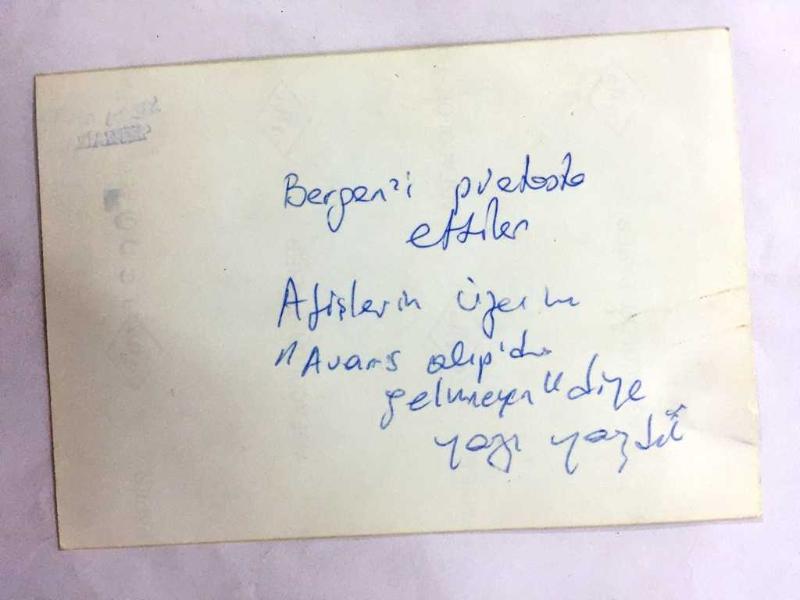 Bergen'i protesto
ettiler
Afişlerin üzerine
"Avans alıp'da
gelmeyen" diye
yazı yazdı